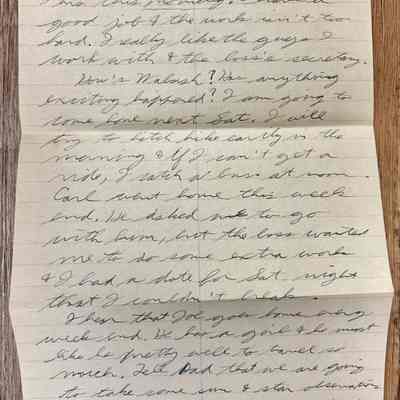 this morning. I have a
good job & the work isn't too
hard. I really like the guys I
work with & the boss's secretary.
How's Wabash? Has anything
exciting happened? I am going to
come home next Sat. I will
try to hitch hike early in the
morning & if I can't get a
ride, I catch a bus at noon.
Carl went home this week
end. He asked me to go
with him, but the boss wanted
me to do some extra work
& I had a date for Sat. night
that I couldn't break.
I hear that Joe goes home every
week end. He has a girl & he must
like he pretty well to travel so
much. Tell Dad that we are going
to take some sun & star observations